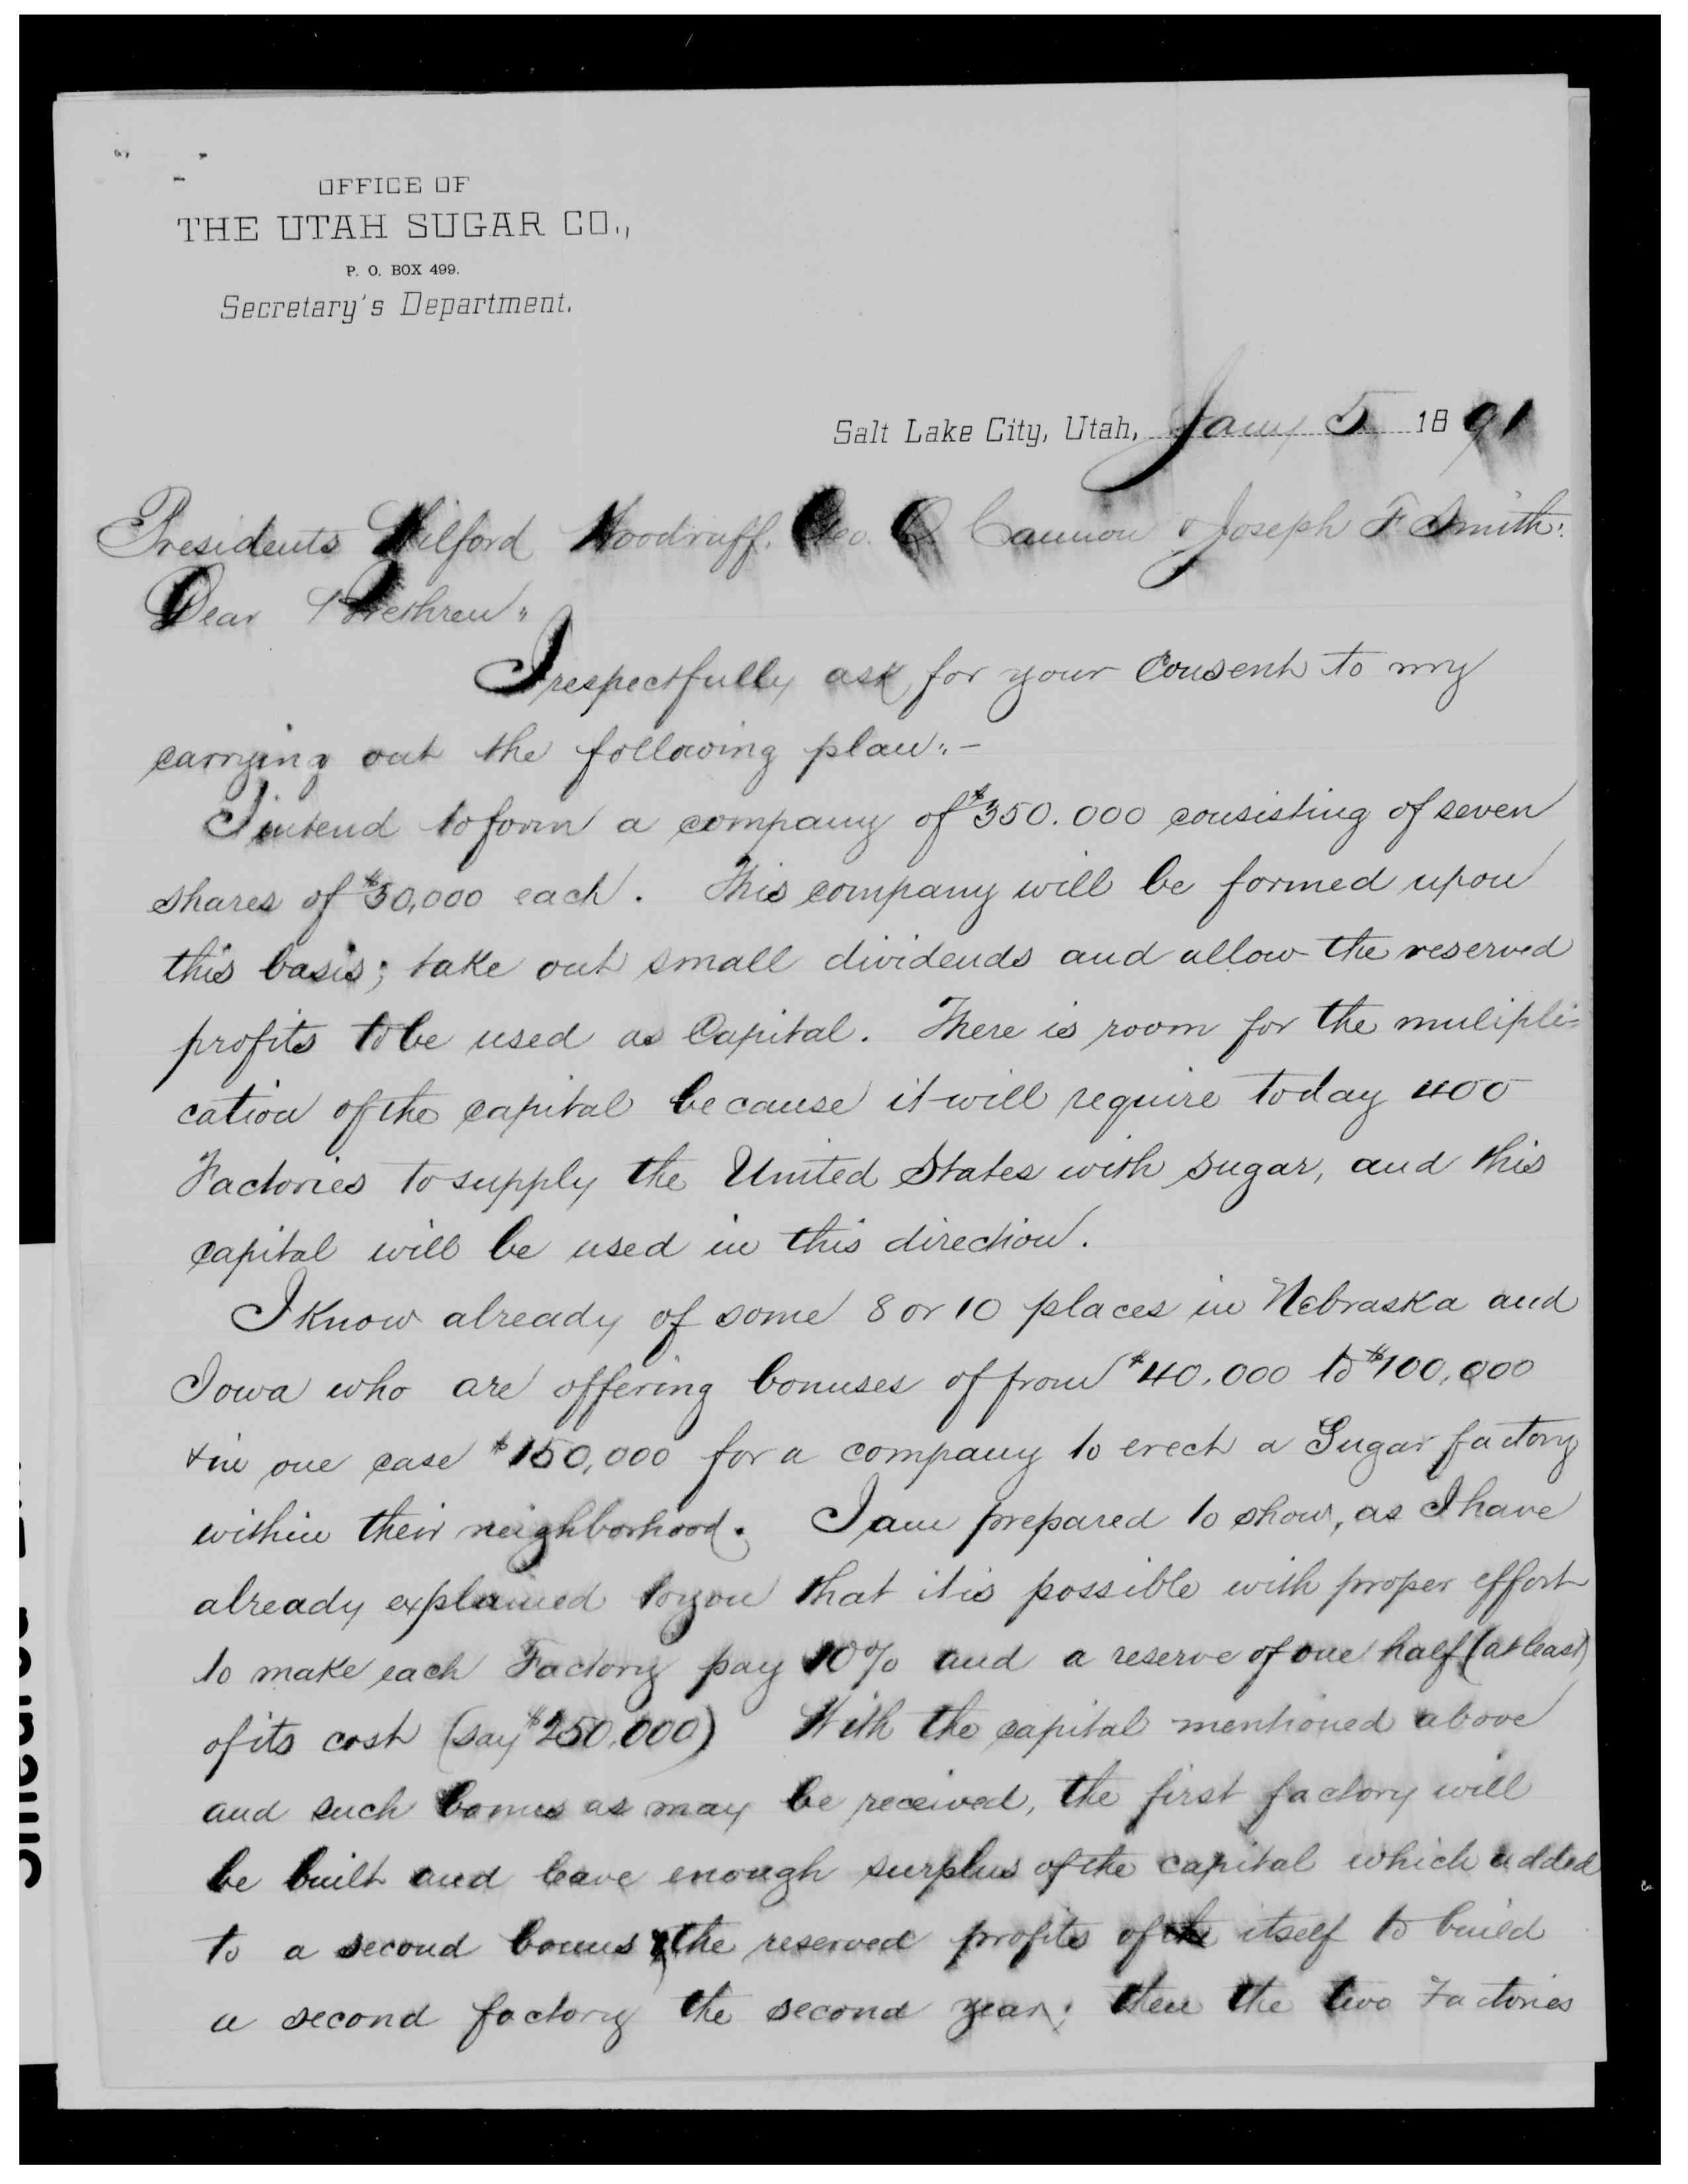 OFFICE OF
THE UTAH SUGAR CO.,
P. O. BOX 499.
Secretary's Department.
Salt Lake City, Utah, Jany 5 1891
Presidents Wilford Woodruff. Geo. Q Cannon & Joseph F Smith:
Dear Brethren:
I respectfully ask for your Consent to my
carrying out the following plan:-
I intend to form a company of $350.000 consisting of seven
shares of $50,000 each. This company will be formed upon
this basis; take out small dividends and allow the reserved
profits to be used as Capital. There is room for the mulipli=
cation of the capital because it will require today 400
Factories to supply the United States with sugar, and this
capital will be used in this direction.
I Know already of some 8 or 10 places in Nebraska and
Iowa who are offering bonuses of from $40.000 to $100,000
& in one case $150,000 for a company to erect a Sugar factory
within their neighborhood. I am prepared to show, as I have
already explained to you that it is possible with proper effort
to make each Factory pay 10% and a reserve of one half (at least)
of its cost (say $250.000) With the capital mentioned above
and such bonus as may be received, the first factory will
be built and leave enough surplus of the capital which added
to a second bonus & the reserved profits of itself to build
a second factory the second year; then the two Factories